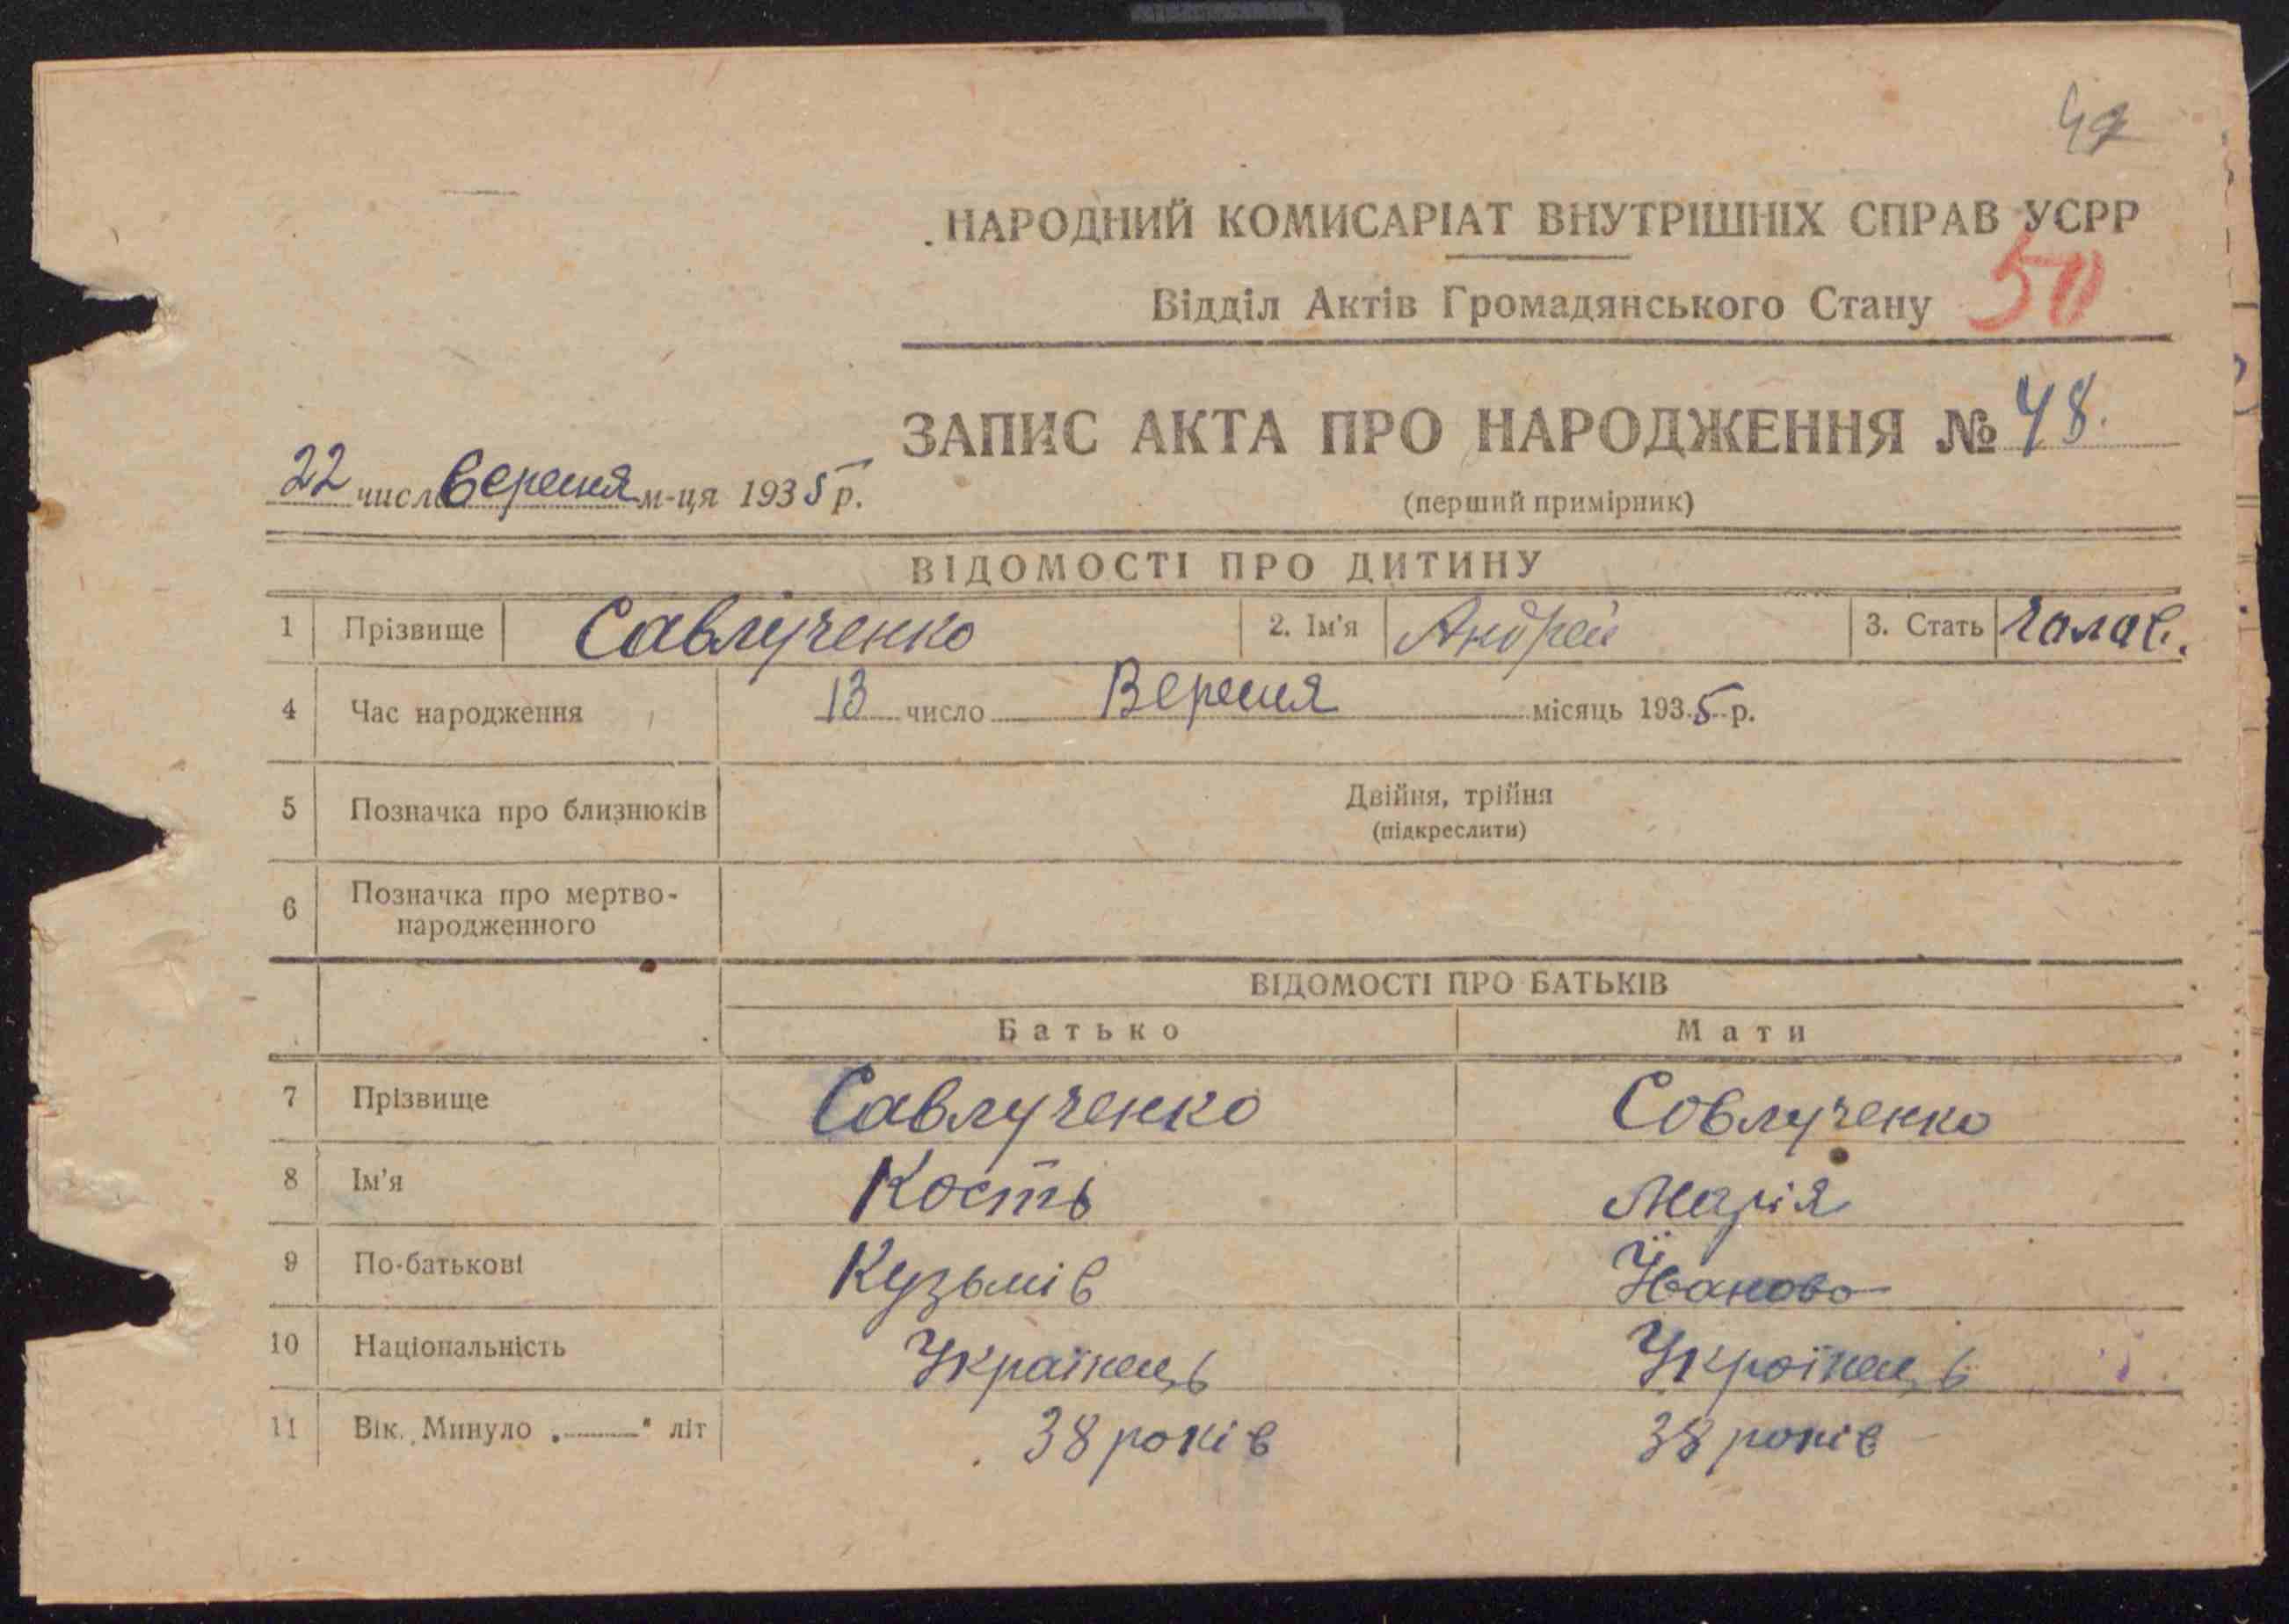 47
. НАРОДНИЙ КОМИСАРІАТ ВНУТРІШНІХ СПРАВ УСРР
50
Відділ Актів Громадянського Стану
ЗАПИС АКТА ПРО НАРОДЖЕННЯ № 48.
22 число Вересня м-ця 1935 р.
(перший примірник)
ВІДОМОСТІ ПРО ДИТИНУ
1 Прізвище Савлученко 2. Ім'я Андрей 3. Стать чолов.
4 Час народження 13 число Вересня місяць 1935 р.
5 Позначка про близнюків Двійня, трійня
(підкреслити)
6 Позначка про мертво-
народженного
ВІДОМОСТІ ПРО БАТЬКІВ
Батько Мати
7 Прізвище Савлученко Совлученко
8 Ім'я Кость Марія
9 По-батькові Кузьмів Йваново
10 Національність Українець Україньць
11 Вік. Минуло „———" літ 38 років 38 років